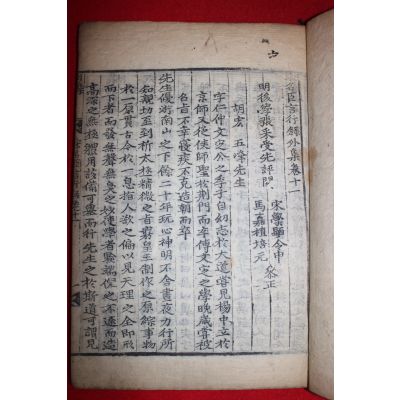 名臣言行錄外集卷十一
明後學張采受先評閱
宋學顯令申
馬嘉植培元
參正
胡宏 五峯先生
字仁仲文定公之季子自幼志於大道嘗見楊中立於
京師又從侯師聖於荊門而卒傳文定之學晚歲嘗被
召旨不幸寢疾不克造朝而卒
先生優游南山之下餘二十年玩心神明不舍晝夜力行所
知親切至到析太極精微之蘊窮皇王制作之原綜事物
於一原貫古今於一息指人欲之偏以見天理之全即形
而下者而發無聲無臭之妙使學者驗端倪之不遠而造
高深之無極體用該備可舉而行先生之於斯道可謂見